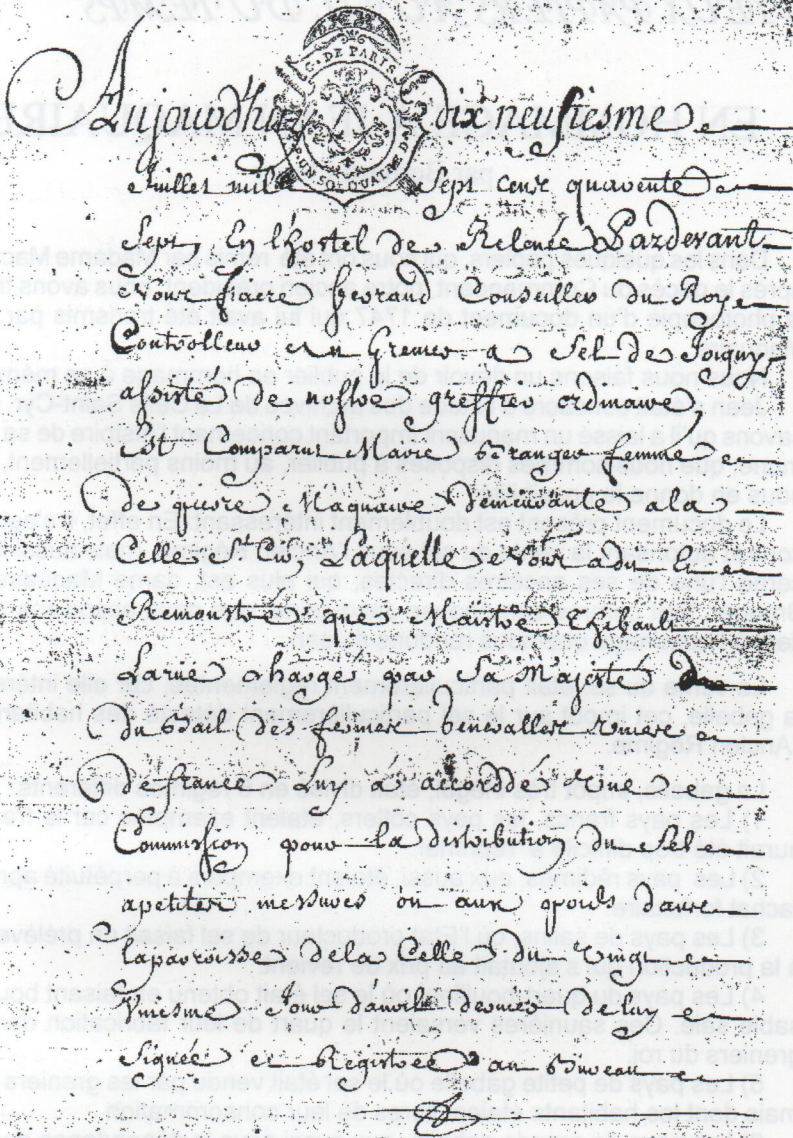 G. DE PARIS
Aujourd'huy dix neufiesme
Juillet mil Sept Cent quarente
Sept, En l'hostel de Relevée Pardevant
Nous fiacre Conseiller du Roy
Controlleur au Grenier a Sel de Joigny
assisté de nostre greffier ordinaire
Est Comparut Marie Beranger femme
de demeurante a la
Celle St Cir, Laquelle Nous a dit et
Remonstré que Maistre Thibault
Larue chargé par Sa Majesté
Du Bail des fermes Generalles Unies
De france Luy a accordé une
Commission pour la distribution du Sel
a petites mesures ou aux poids dans
la paroisse de la Celle Du Vingt
Uniesme Jour d'avril dernier de luy
Signée et Registrée au Bureau